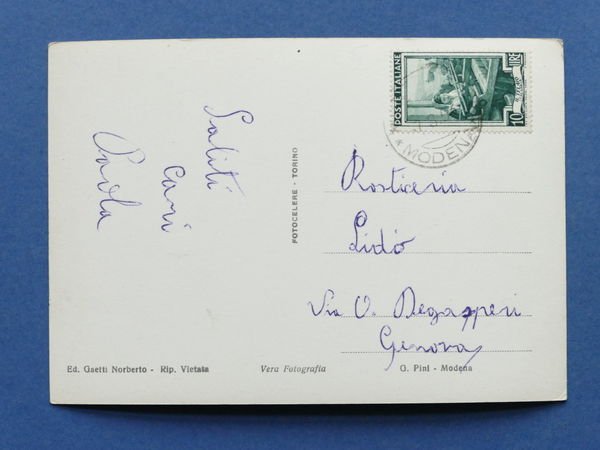 Saluti
Cari
Paola
FOTOCELERE - TORINO
POSTE ITALIANE
10 LIRE
MODENA
Rosticeria
Lido
Via O. Degasperi
Genova
Ed. Gaetti Norberto - Rip. Vietata
Vera Fotografia
G. Pini - Modena